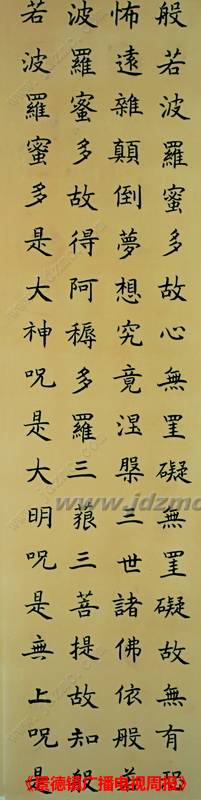 般若波羅蜜多故心無罣礙無罣礙故無有恐
怖遠雜顛倒夢想究竟涅槃三世諸佛依般若
波羅蜜多故得阿耨多羅三藐三菩提故知般
若波羅蜜多是大神呪是大明呪是無上呪是
www.jdzmc
《景德镇广播电视周报》